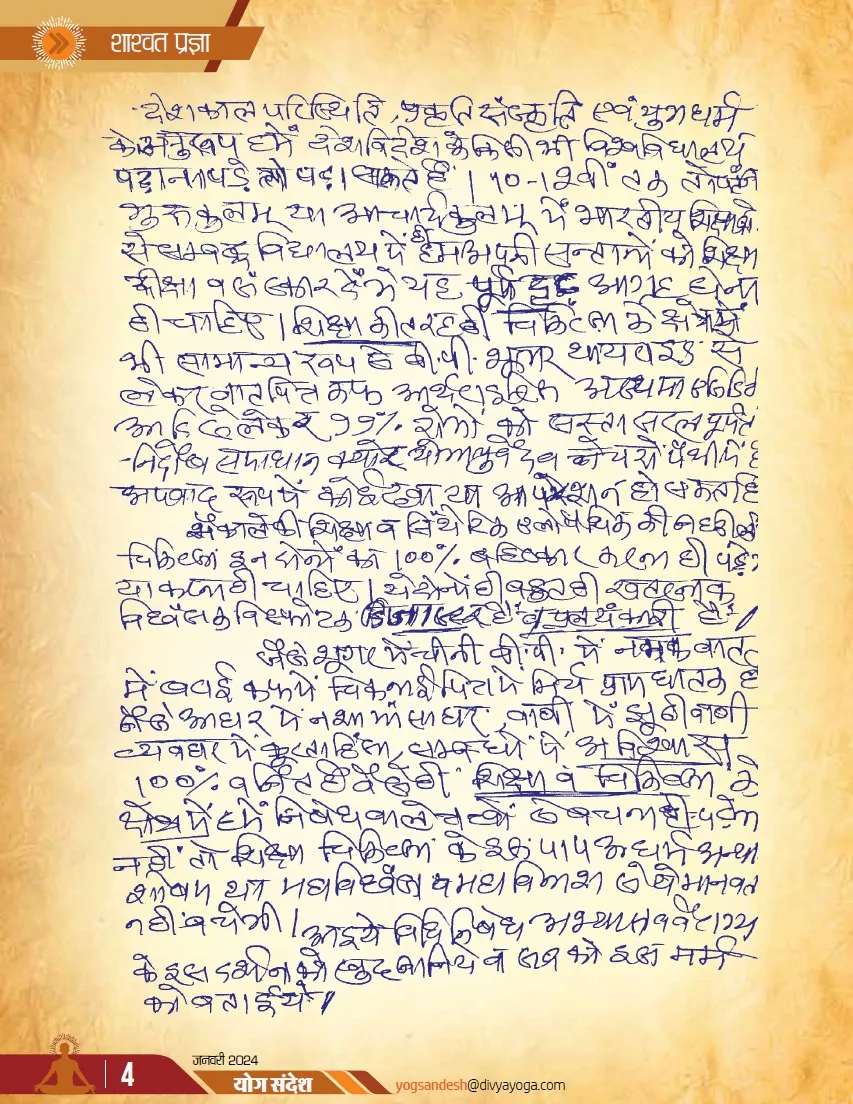 शाश्वत प्रज्ञा
देशकाल परिस्थिति, प्रकृति संस्कृति एवं युगधर्म
के अनुरूप हमें देश विदेश के किसी भी विश्वविद्यालय
पढ़ाना पड़े तो पढ़ा सकते हैं। 10-12वीं तक तो
गुरुकुलम् या आचार्यकुलम् में भारतीय शिक्षा
से सम्बद्ध विद्यालय में ही हम अपनी सन्तानों को शिक्षा
दीक्षा व संस्कार देंगे यह पूर्ण दृढ़ आग्रह होना
ही चाहिए। शिक्षा की तरह ही चिकित्सा के क्षेत्र में
भी सामान्य रूप से बी.पी. शूगर थायराइड से
लेकर वात पित्त कफ आर्थराइटिस अस्थमा
आदि से लेकर 99% रोगों को सस्ता सरल
निर्दोष समाधान योग आयुर्वेद व नेचरोपैथी में है
अपवाद रूप में कोई दवा या आपरेशन हो सकता है
मैकाले की शिक्षा व सिंथेटिक एलोपैथिक की
चिकित्सा इन दोनों का 100% बहिष्कार करना ही पड़ेगा
या करना ही चाहिए। ये दोनों ही बहुत ही खतरनाक
विध्वंसक विस्फोटक हैं व प्रलयंकारी हैं।
जैसे शूगर में चीनी बी.पी. में नमक वात
में खटाई कफ में चिकनाई पित्त में मिर्च प्राण घातक है
जैसे आहार में नशा मांसाहार, वाणी में झूठी वाणी
व्यवहार में क्रूरता हिंसा, सम्बन्धों में अविश्वास
100% वर्जित है वैसे ही शिक्षा व चिकित्सा के
क्षेत्र में हमें निषेध वाले से बचना ही पड़ेगा
नहीं तो शिक्षा चिकित्सा के इस पाप अधर्म अन्याय
शोषण महाविध्वंस व महाविनाश से ये मानवता
नहीं बचेगी। आइये विधि निषेध अभ्यास व वैराग्य
के इस दर्शन को खुद जानिये व सब को इस मर्म
को बताईये।
4
जनवरी 2024
योग संदेश
yogsandesh@divyayoga.com